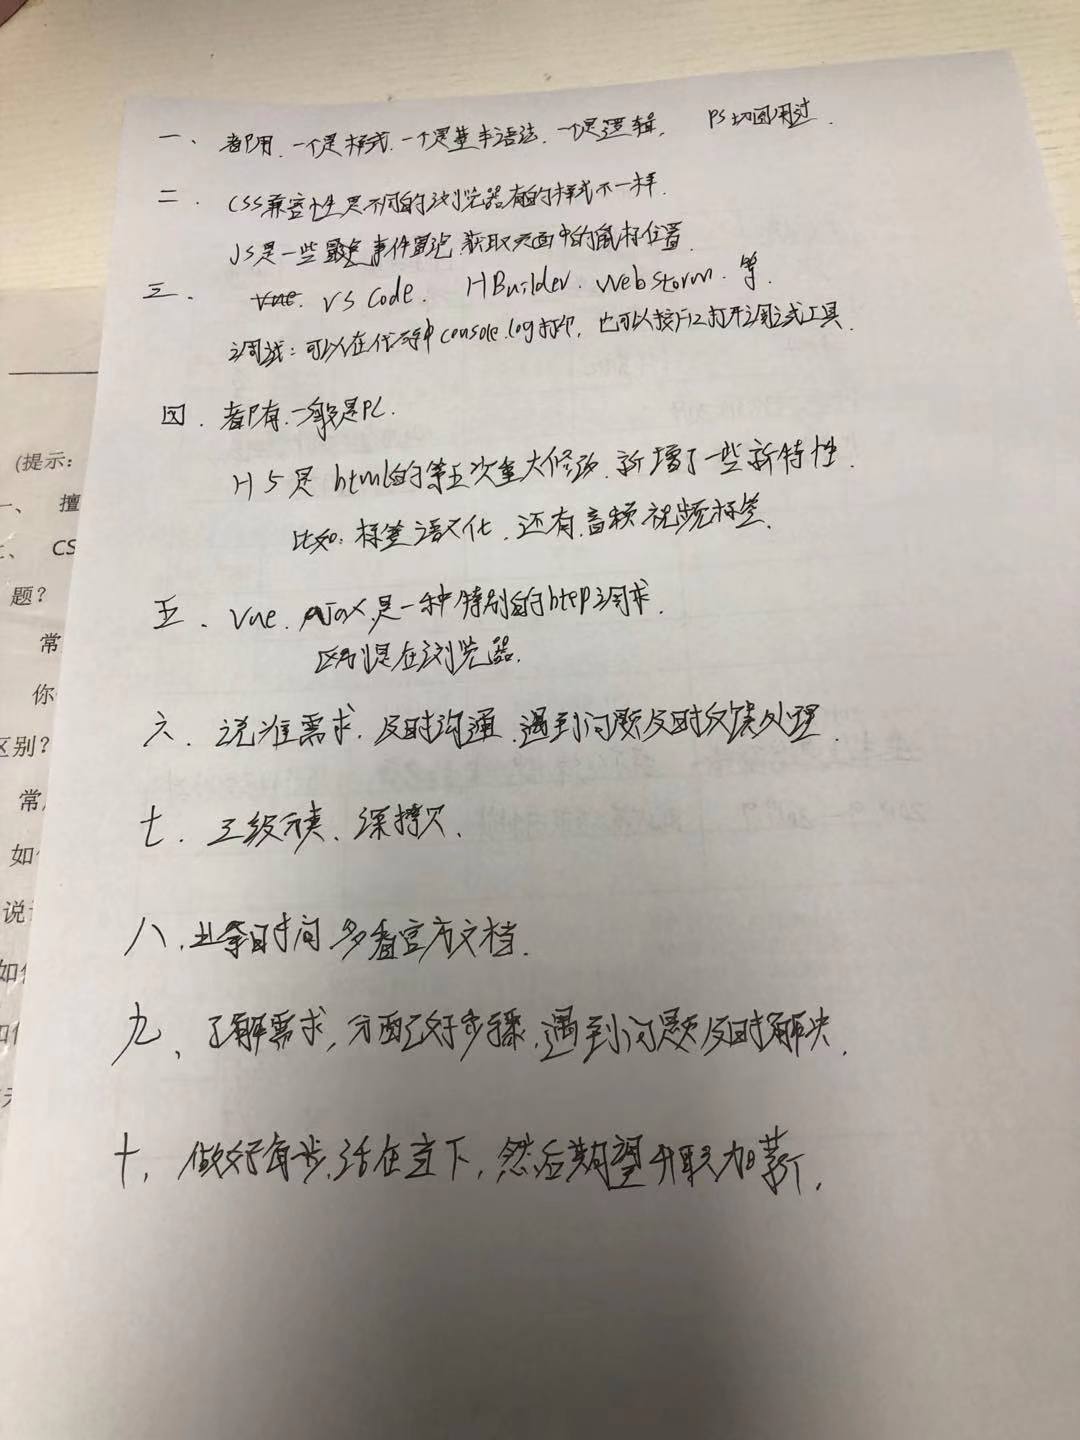 一、都用、一个是样式、一个是基本语法、一个是逻辑, PS切图用过.
二. CSS兼容性是不同的浏览器有的样式不一样.
JS是一些 事件冒泡 获取页面中的鼠标位置.
三. vue. VS Code. HBuilder. Web storm. 等.
调试: 可以在代码中console.log打印, 也可以按F12打开调试工具.
四. 都有. 一般是PC.
H5是html的第五次重大修改, 新增了一些新特性.
比如: 标签语义化, 还有音频视频标签.
五. Vue. AJax是一种特别的http调求.
区别是在浏览器.
六. 说准需求, 及时沟通, 遇到问题及时反馈处理.
七. 三级元表、深拷贝.
八. 业余时间 多看官方文档.
九、了解需求, 分配好步骤, 遇到问题及时解决.
十, 做好每步, 活在当下, 然后期望升职加薪.
(提示:
一、 擅
CS
题?
常
你
区别?
常
如
说
如